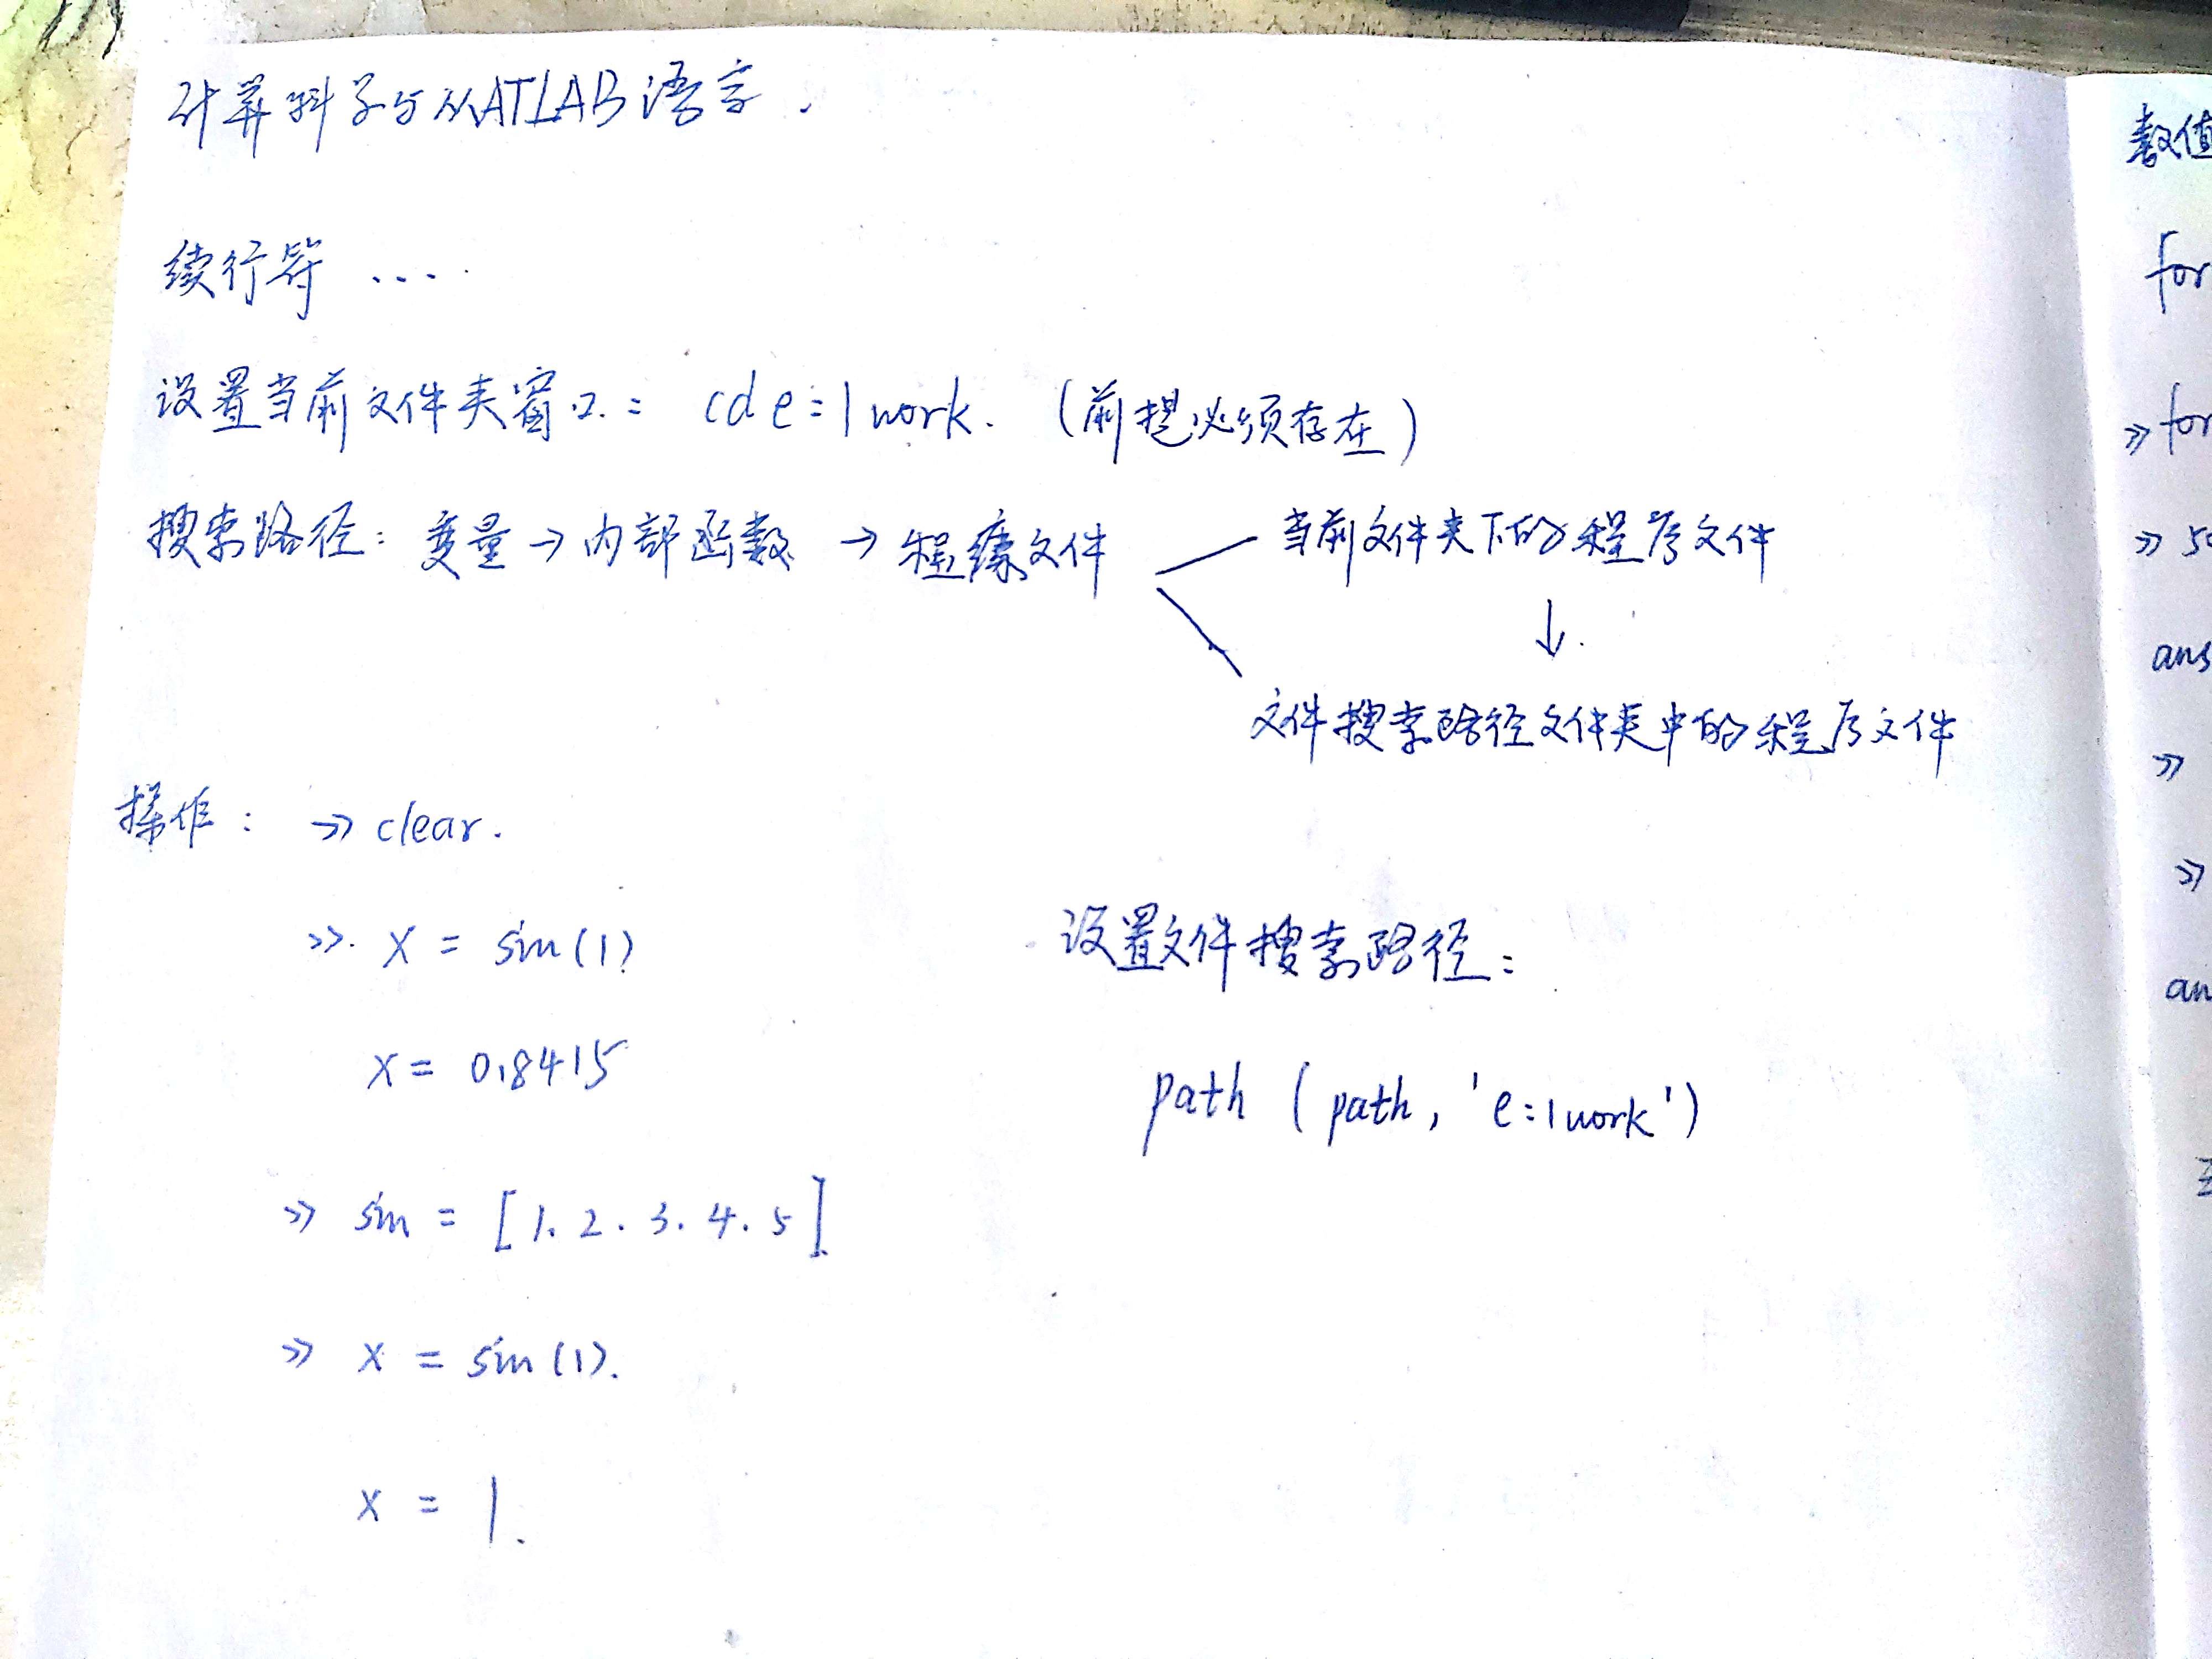 计算科学与MATLAB语言.
续行符 ....
设置当前文件夹窗口: cd e:\work. (前提必须存在)
搜索路径: 变量 → 内部函数 → 程序文件
当前文件夹下的程序文件
↓
文件搜索路径文件夹中的程序文件
操作: >> clear.
>> x = sin(1)
x = 0.8415
>> sin = [1. 2. 3. 4. 5]
>> x = sin(1).
x = 1.
设置文件搜索路径:
path (path, 'e:\work')
数值
for
>> for
>>
ans
>>
>>
an